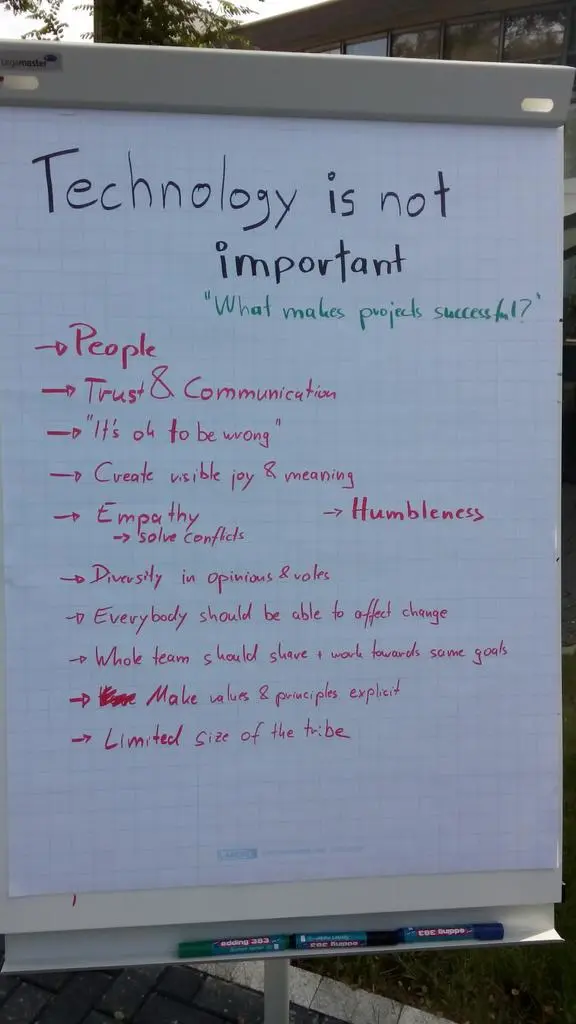 Legamaster
Technology is not
important
"What makes projects successful?"
→ People
→ Trust & Communication
→ "It's ok to be wrong"
→ Create visible joy & meaning
→ Empathy → Humbleness
→ solve conflicts
→ Diversity in opinions & roles
→ Everybody should be able to affect change
→ Whole team should share + work towards same goals
→ Make values & principles explicit
→ Limited size of the tribe
edding 383
edding 383
edding 383